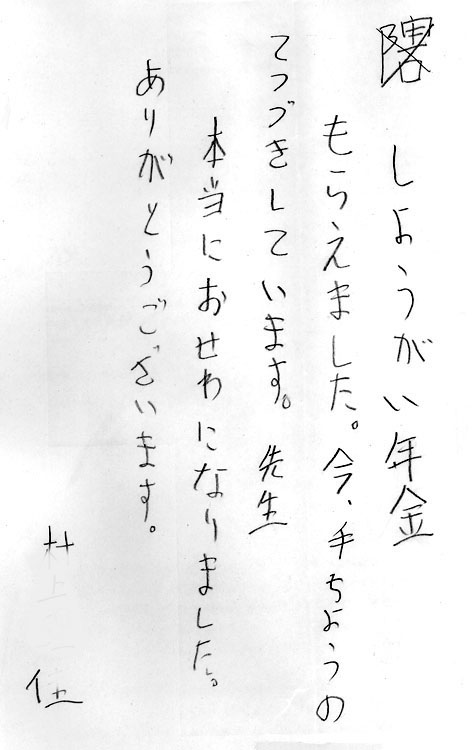 しようがい年金
もらえました。今、手ちょうの
てつづきしています。先生
本当におせわになりました。
ありがとうございます。